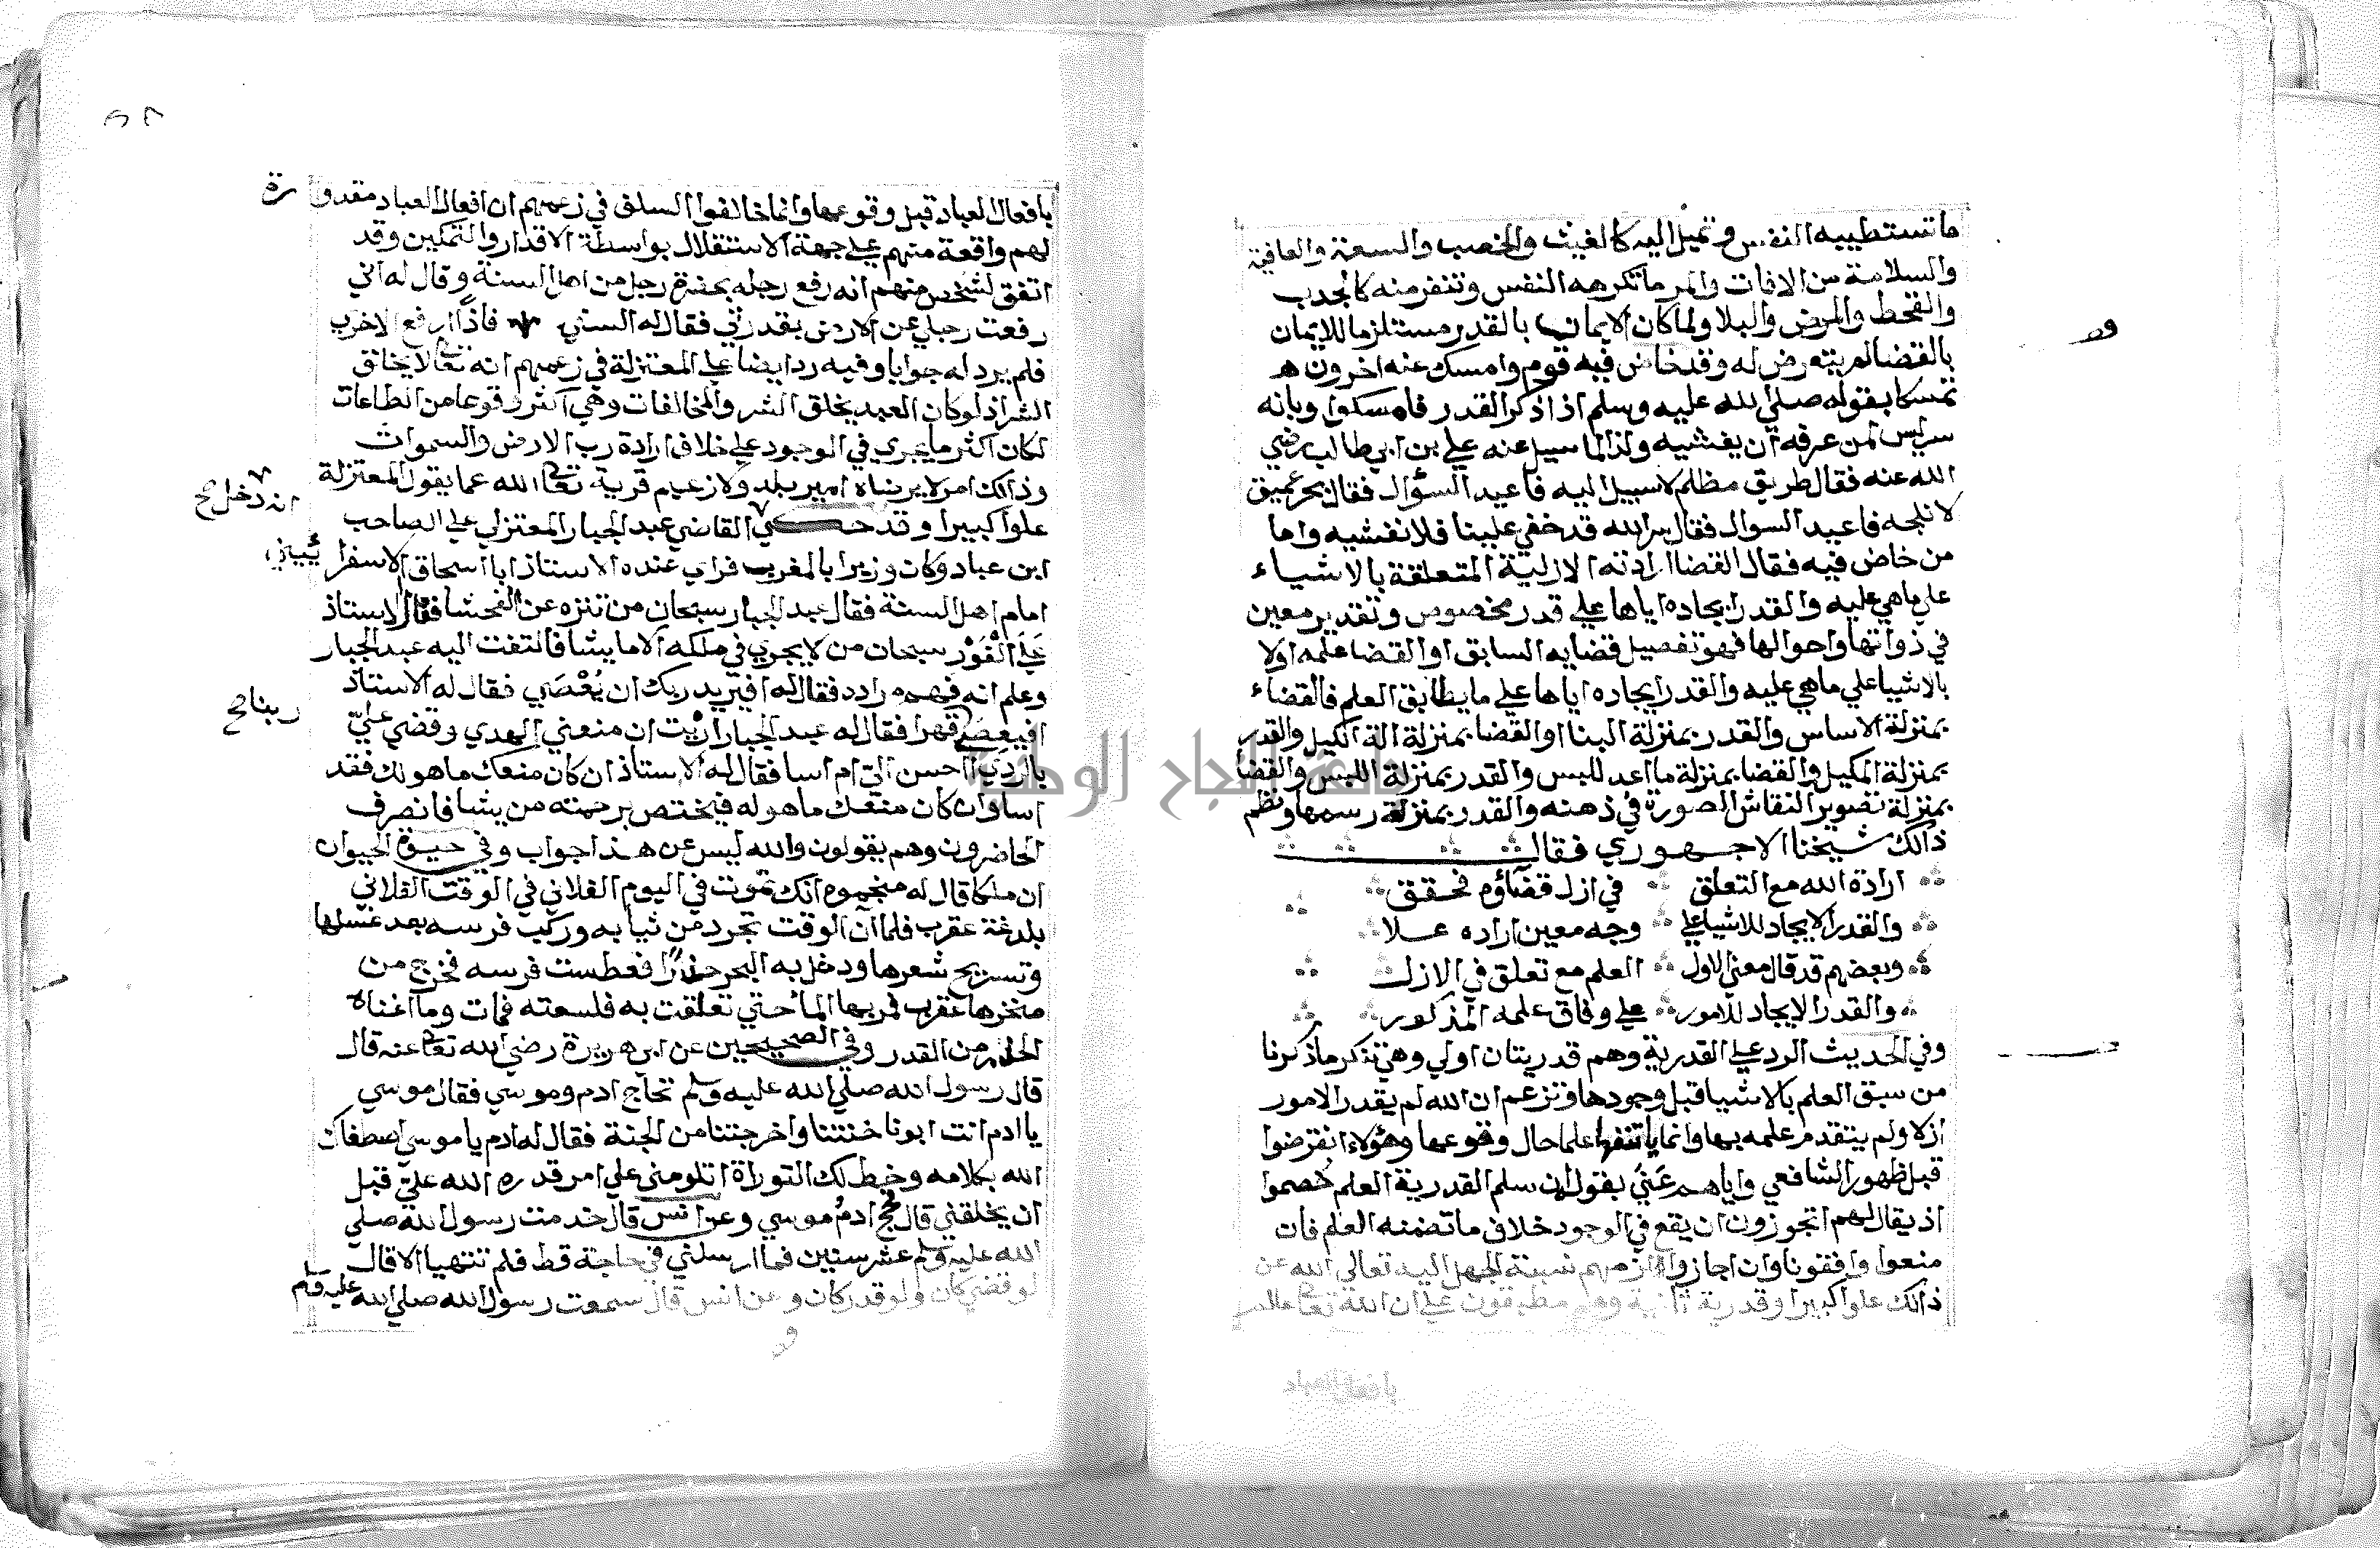 ما تستطيبه النفس وتميل اليه كالغيث والخصب والسعة والعافية
والسلامة من الافات والمر ما تكرهه النفس وتنفر منه كالجدب
والقحط والمرض والبلا ولما كان الايمان بالقدر مستلزما للايمان
بالقضا لم يتعرض له وقد خاض فيه قوم وامسك عنه اخرون
تمسكا بقوله صلي الله عليه وسلم اذا ذكر القدر فامسكوا وبانه
سر ليس لمن عرفه ان يفشيه ولذا لما سيل عنه علي بن ابي طالب رضي
الله عنه فقال طريق مظلم لا سبيل اليه فاعيد السؤال فقال بحر عميق
لا نلجه فاعيد السوال فقال سر الله قد خفي علينا فلا نفشيه واما
من خاض فيه فقال القضا ارادته الازلية المتعلقة بالاشياء
علي ماهي عليه والقدر ايجاده اياها علي قدر مخصوص وتقدير معين
في ذواتها واحوالها فهو تفصيل قضايه السابق او القضا علمه اولا
بالاشيا علي ماهي عليه والقدر ايجاده اياها علي ما يطابق العلم فالقضاء
بمنزلة الاساس والقدر بمنزلة البنا او القضا بمنزلة الة الكيل والقدر
بمنزلة المكيل والقضا بمنزلة ما اعد للبس والقدر بمنزلة اللبس والقضا
بمنزلة تصوير النقاش الصورة في ذهنه والقدر بمنزلة رسمها ونظم
ذالك شيخنا الاجهوري فقال
ارادة الله مع التعلق في ازل قضاؤه فحقق
والقدر الايجاد للاشيا علي وجه معين اراده علا
وبعضهم قد قال معني الاول العلم مع تعلق في الازل
والقدر الايجاد للامور علي وفاق علمه المذكور
وفي الحديث الرد علي القدرية وهم قدريتان اولي وهي تنكر ما ذكرنا
من سبق العلم بالاشيا قبل وجودها وتزعم ان الله لم يقدر الامور
ازلا ولم يتقدم علمه بها وانما علما حال وقوعها وهؤلاء انقرضوا
قبل ظهور الشافعي واياهم عني بقوله ان سلم القدرية العلم خصموا
اذ يقال لهم اتجوزون ان يقع في الوجود خلاف ما تضمنه العلم فان
منعوا وافقونا وان اجازوا لزمهم نسبة الجهل اليه تعالي الله عن
ذالك علوا كبيرا وقدرية ثانية وهم مطبقون علي ان الله تعا عالم
بافعال العباد
بافعال العباد قبل وقوعها وانما خالفوا السلف في زعمهم ان افعال العباد مقدورة
لهم واقعة منهم علي جهة الاستقلال بواسطة الاقدار والتمكين وقد
اتفق لشخص منهم انه رفع رجله بحضرة رجل من اهل السنة وقال له اني
رفعت رجلي عن الارض بقدرتي فقال له السني فاذا ارفع الاخري
فلم يرد له جوابا وفيه رد ايضا علي المعتزلة في زعمهم انه تعا لا يخلق
الشر اذ لو كان العبد يخلق الشر والمخالفات وهي اكثر وقوعا من الطاعات
لكان اكثر ما يجري في الوجود علي خلاف ارادة رب الارض والسموات
وذالك امر لا يرضاه امير بلد ولا زعيم قرية تعا الله عما يقول المعتزلة
علوا كبيرا وقد حكي القاضي عبد الجبار المعتزلي علي الصاحب
انه دخل صح
ابن عباد وكان وزيرا بالمغرب فراي عنده الاستاذ ابا اسحاق الاسفراييني
امام اهل السنة فقال عبد الجبار سبحان من تنزه عن الفحشا فقال الاستاذ
علي الفور سبحان من لا يجري في ملكه الا ما يشا فالتفت اليه عبد الجبار
وعلم انه فهم مراده فقال له افيريد ربك ان يعصي فقال له الاستاذ
ربنا صح
افيعصي قهرا فقال له عبد الجبار ارايت ان منعني الهدي وقضي علي
بالردي احسن الي ام اسا فقال له الاستاذ ان كان منعك ما هو لك فقد
اسا وان كان منعك ما هو له فيختص برحمته من يشا فانصرف
الحاضرون وهم يقولون والله ليس عن هذا جواب وفي حيوة الحيوان
ان ملكا قال له منجموه انك تموت في اليوم الفلاني في الوقت الفلاني
بلدغة عقرب فلما آن الوقت تجرد من ثيابه وركب فرسه بعد غسلها
وتسريح شعرها ودخل به البحر حذرا فعطست فرسه فخرج من
منخرها عقرب فمر بها الما حتي تعلقت به فلسعته فمات وما اغناه
الحذر من القدر وفي الصحيحين عن ابي هريرة رضي الله تعا عنه قال
قال رسول الله صلي الله عليه وسلم تحاج ادم وموسي فقال موسي
يا ادم انت ابونا خنتنا واخرجتنا من الجنة فقال له ادم يا موسي اصطفاك
الله بكلامه وخط لك التوراة اتلومني علي امر قدره الله علي قبل
ان يخلقني قال فحج ادم موسي وعن انس قال خدمت رسول الله صلي
الله عليه وسلم عشر سنين فما ارسلني في حاجة قط فلم تتهيا الا قال
لو قضي كان ولو قدر كان وعن انس قال سمعت رسول الله صلي الله عليه وسلم
جامعة النجاح الوطنية